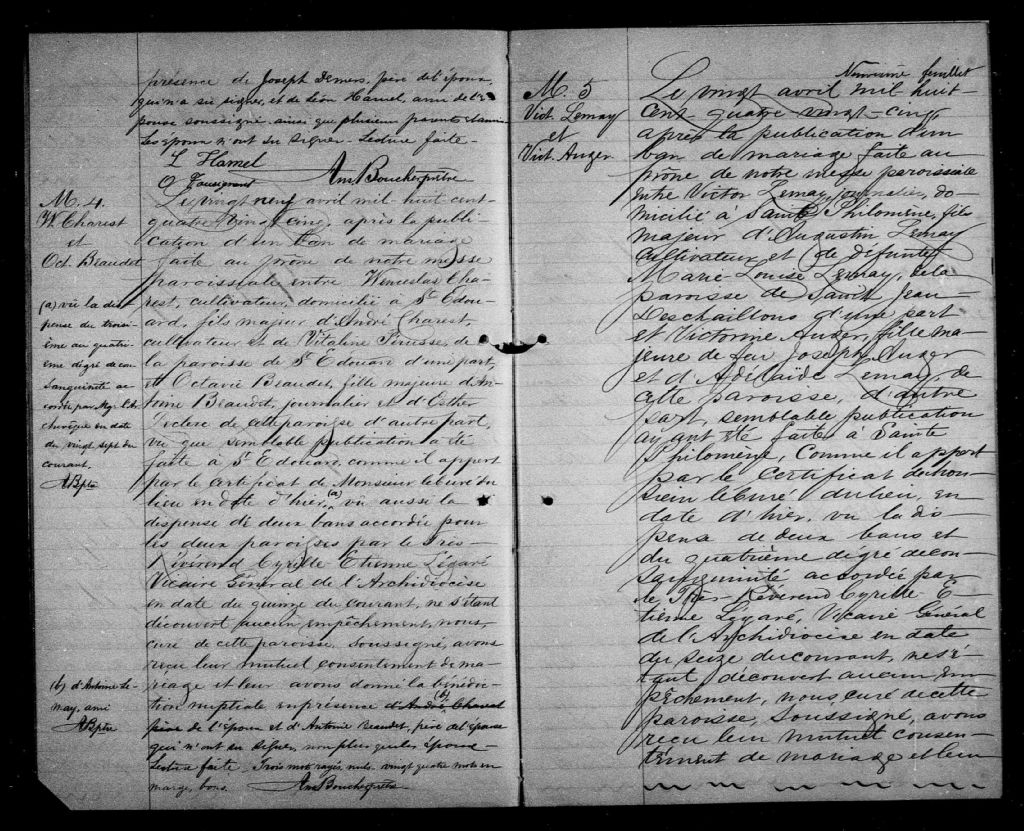 présence de Joseph Demers, père de l'époux
qui n'a su signer, et de Léon Hamel, ami de l'é-
pouse soussigné ainsi que plusieurs parents et amis
Les époux n'ont su signer. Lecture faite.
L Hamel
Am Boucher ptre
M. 4.
W. Charest
et
Oct. Beaudet
(a) vû la dis-
pense du troisi-
ème au quatri-
ème dégré de con-
sanguinité ac-
cordée par Mgr. l'Ar-
chevêque en date
du vingt sept du
courant.
AB ptre
(b) d'Antoine Le-
may, ami
AB ptre
Le vingt neuf avril mil huit cent-
quatre vingt cinq, après la publi-
cation d'un ban de mariage
faite au prône de notre messe
paroissiale entre Wenceslas Cha-
rest, cultivateur, domicilié à St. Edou-
ard, fils majeur d'André Charest,
cultivateur et de Vitaline Perusse, de
la paroisse de St. Edouard d'une part,
et Octavie Beaudet, fille majeure d'An-
toine Beaudet, journalier et d'Esther
Leclerc de cette paroisse d'autre part,
vu que semblable publication a été
faite à St. Edouard, comme il appert
par le certificat de Monsieur le curé du
lieu en date d'hier, (a) vu aussi la
dispense de deux bans accordée pour
les deux paroisses par le Très
Révérend Cyrille Etienne Légaré
Vicaire Général de l'Archidiocèse
en date du quinze du courant, ne s'étant
découvert aucun empêchement, nous,
curé de cette paroisse, soussigné, avons
reçu leur mutuel consentement de ma-
riage et leur avons donné la bénédic-
tion nuptiale en présence (b) d'André Charest
père de l'époux et d'Antoine Beaudet, père de l'épouse
qui n'ont su signer, non plus que les époux
Lecture faite. Trois mots rayés nuls. vingt quatre mots en
marge, bons. Am Boucher ptre
Neuvième feuillet
M. 5
Vict. Lemay
et
Vict. Auger
Le vingt avril mil huit-
cent quatre vingt-cinq
après la publication d'un
ban de mariage faite au
prône de notre messe paroissiale
entre Victor Lemay, journalier, do-
micilié à Sainte Philomène, fils
majeur d'Augustin Lemay
cultivateur et de défunte
Marie Louise Lemay, de la
paroisse de Saint Jean
Deschaillons d'une part
et Victorine Auger, fille ma-
jeure de feu Joseph Auger
et d'Adélaïde Lemay, de
cette paroisse, d'autre
part, semblable publication
ayant été faite à Sainte
Philomène, comme il appert
par le certificat de Mon-
sieur le Curé du lieu, en
date d'hier, vu la dis-
pense de deux bans et
du quatrième dégré de con-
sanguinité accordée par
le Très Révérend Cyrille E-
tienne Légaré, Vicaire Général
de l'Archidiocèse en date
du seize du courant, ne s'é-
tant découvert aucun em-
pêchement, nous, curé de cette
paroisse, soussigné, avons
reçu leur mutuel consen-
tement de mariage et leur